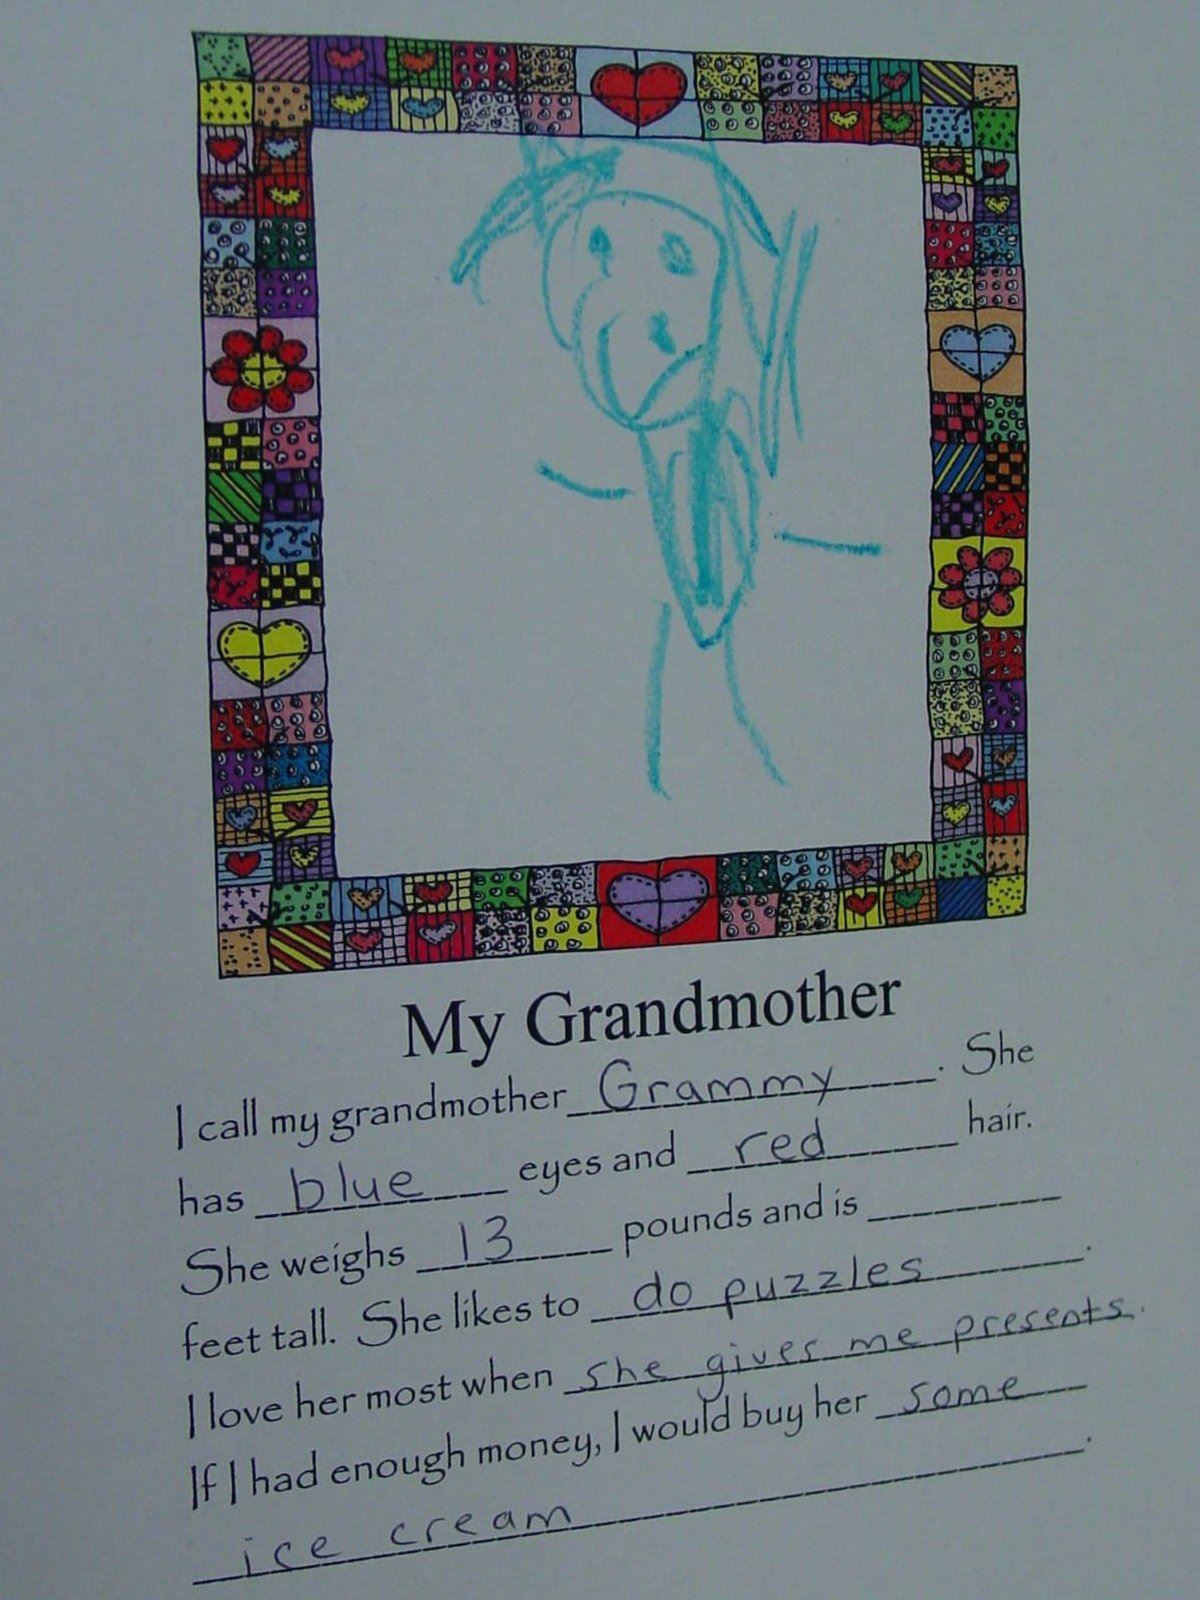 My Grandmother
I call my grandmother Grammy. She
has blue eyes and red hair.
She weighs 13 pounds and is
feet tall. She likes to do puzzles.
I love her most when she gives me presents.
If I had enough money, I would buy her some
ice cream.